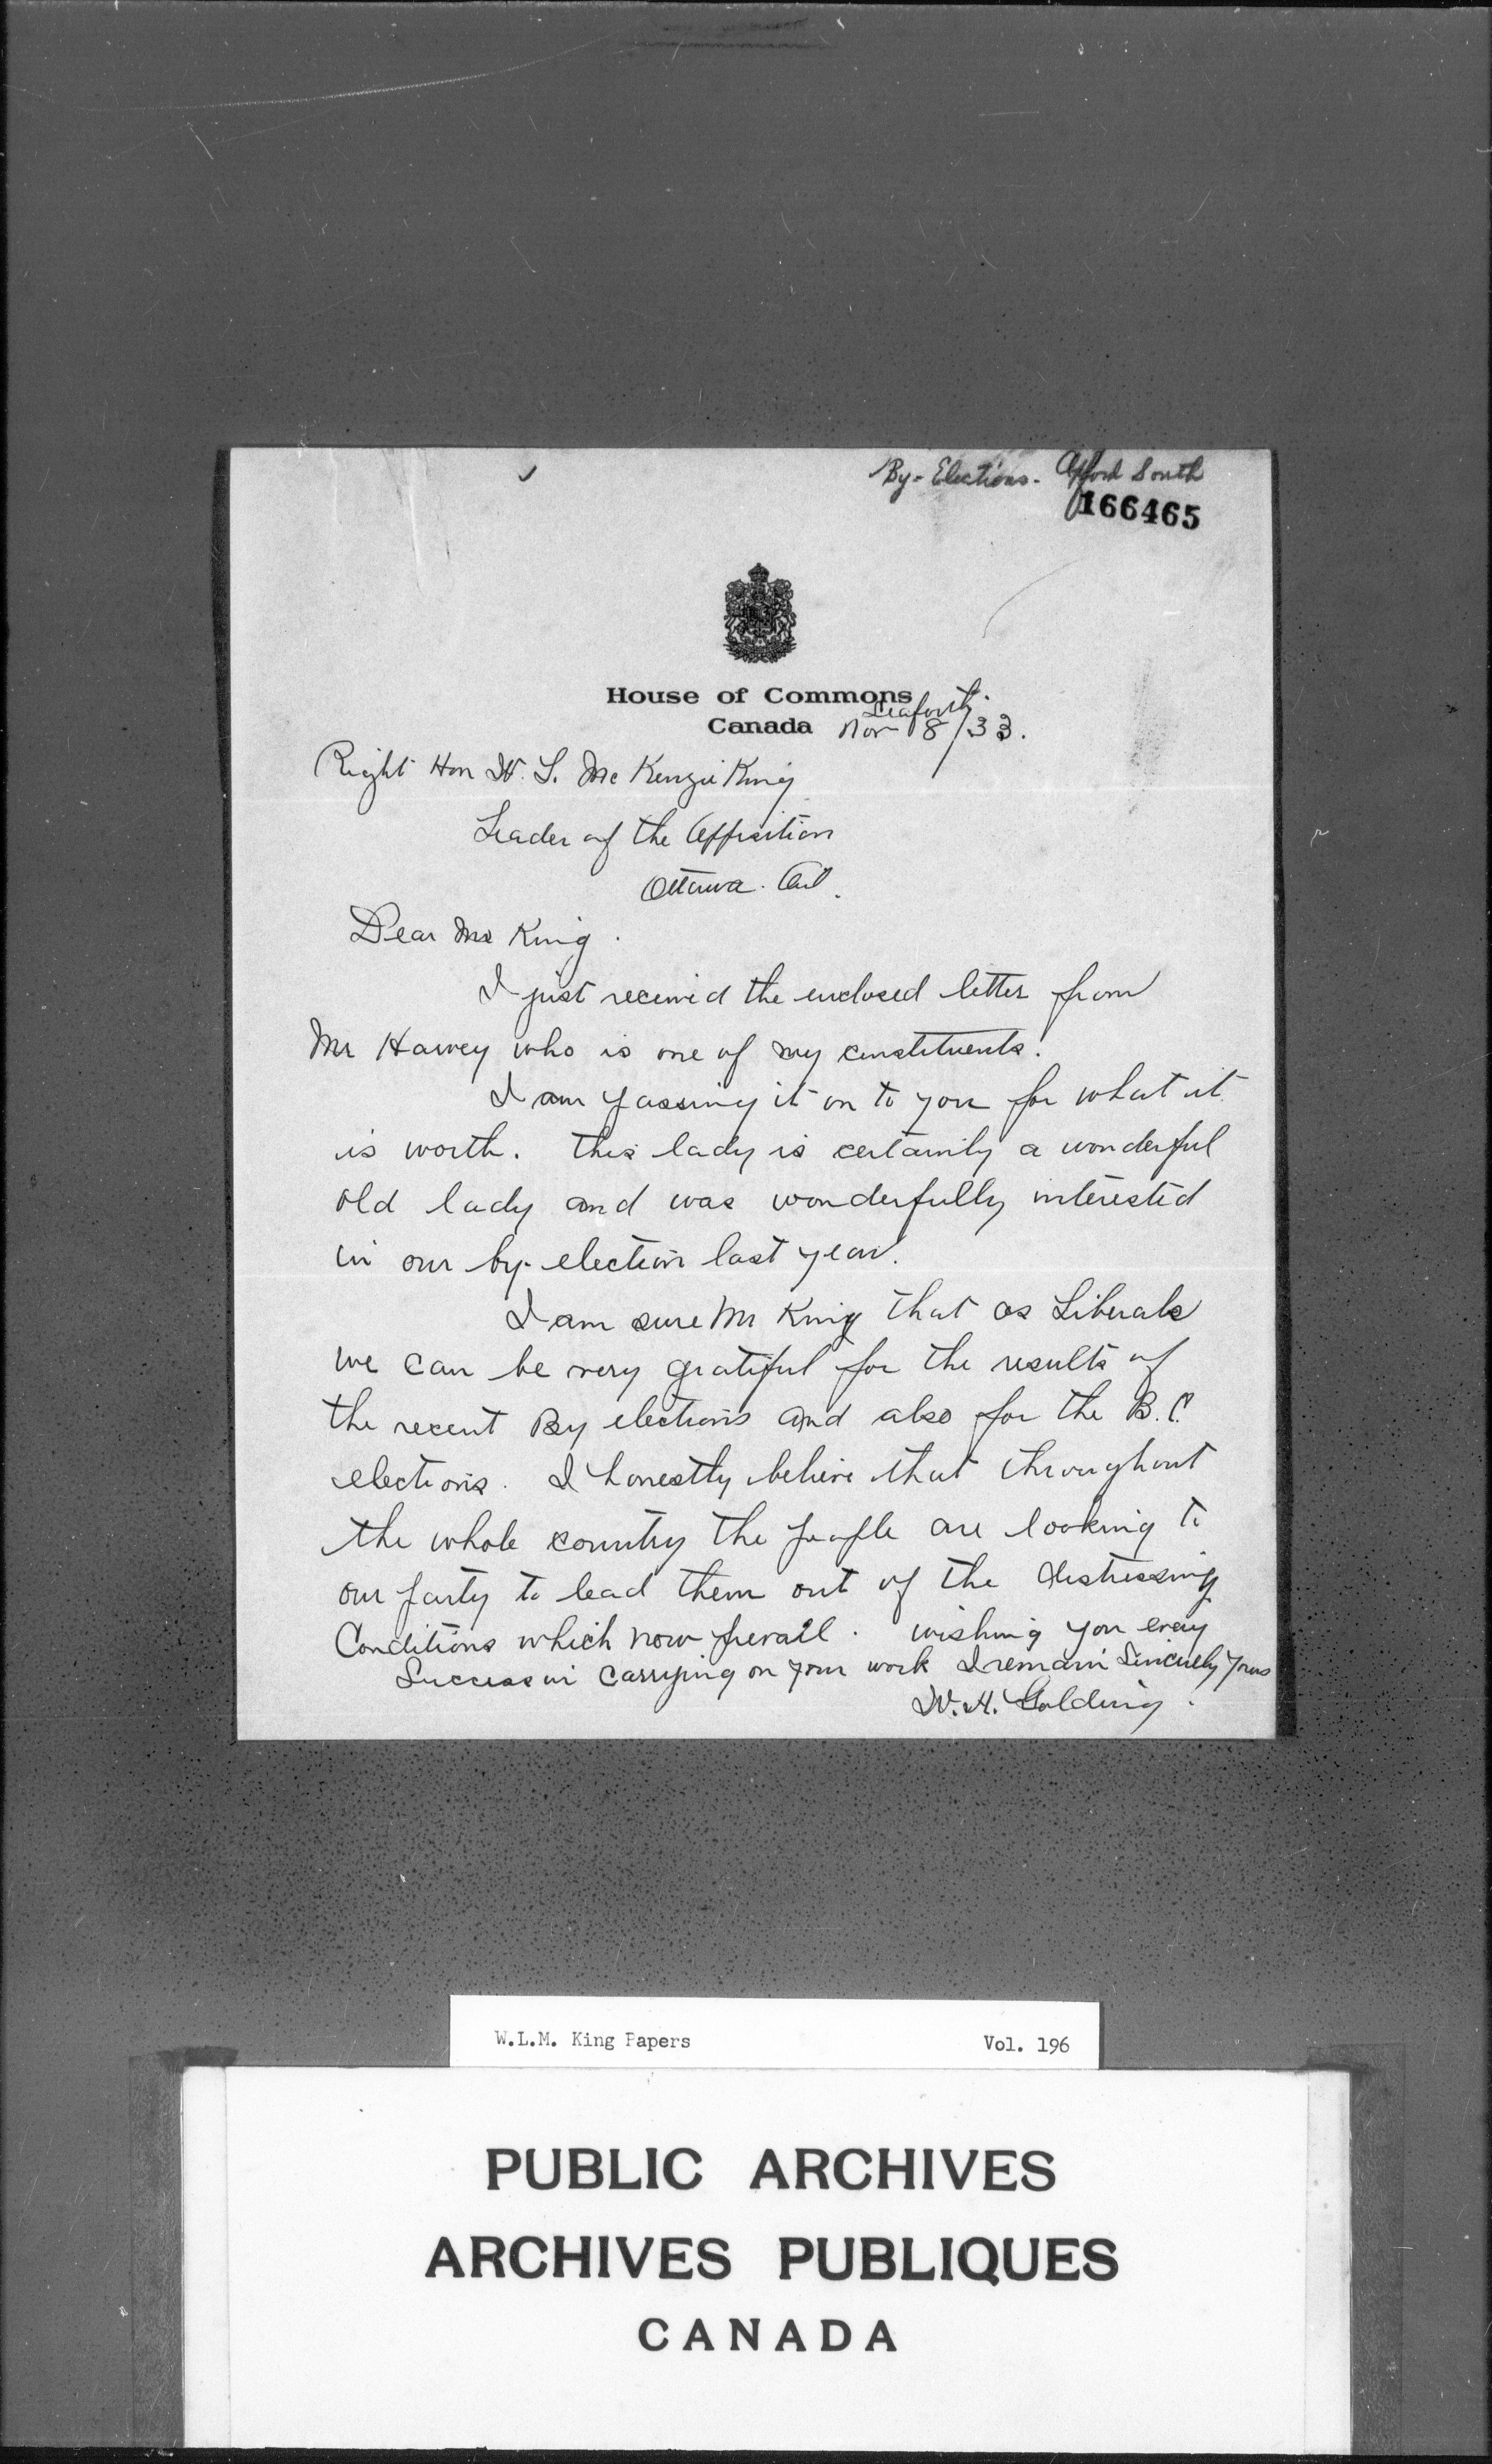 By-Elections. Oxford South
166465
House of Commons
Canada
Seaforth.
Nov 8/33.
Right Hon W. L. McKenzie King
Leader of the Opposition
Ottawa. Ont.
Dear Mr King.
I just received the enclosed letter from
Mr Harvey who is one of my constituents.
I am passing it on to you for what it
is worth. This lady is certainly a wonderful
old lady and was wonderfully interested
in our by-election last year.
I am sure Mr King that as Liberals
we can be very gratiful for the results of
the recent By elections and also for the B.C.
elections. I honestly believe that throughout
the whole country the people are looking to
our party to lead them out of the distressing
Conditions which now prevail. wishing you every
Success in carrying on your work I remain Sincerely Yours
W. H. Golding.
W.L.M. King Papers Vol. 196
PUBLIC ARCHIVES
ARCHIVES PUBLIQUES
CANADA